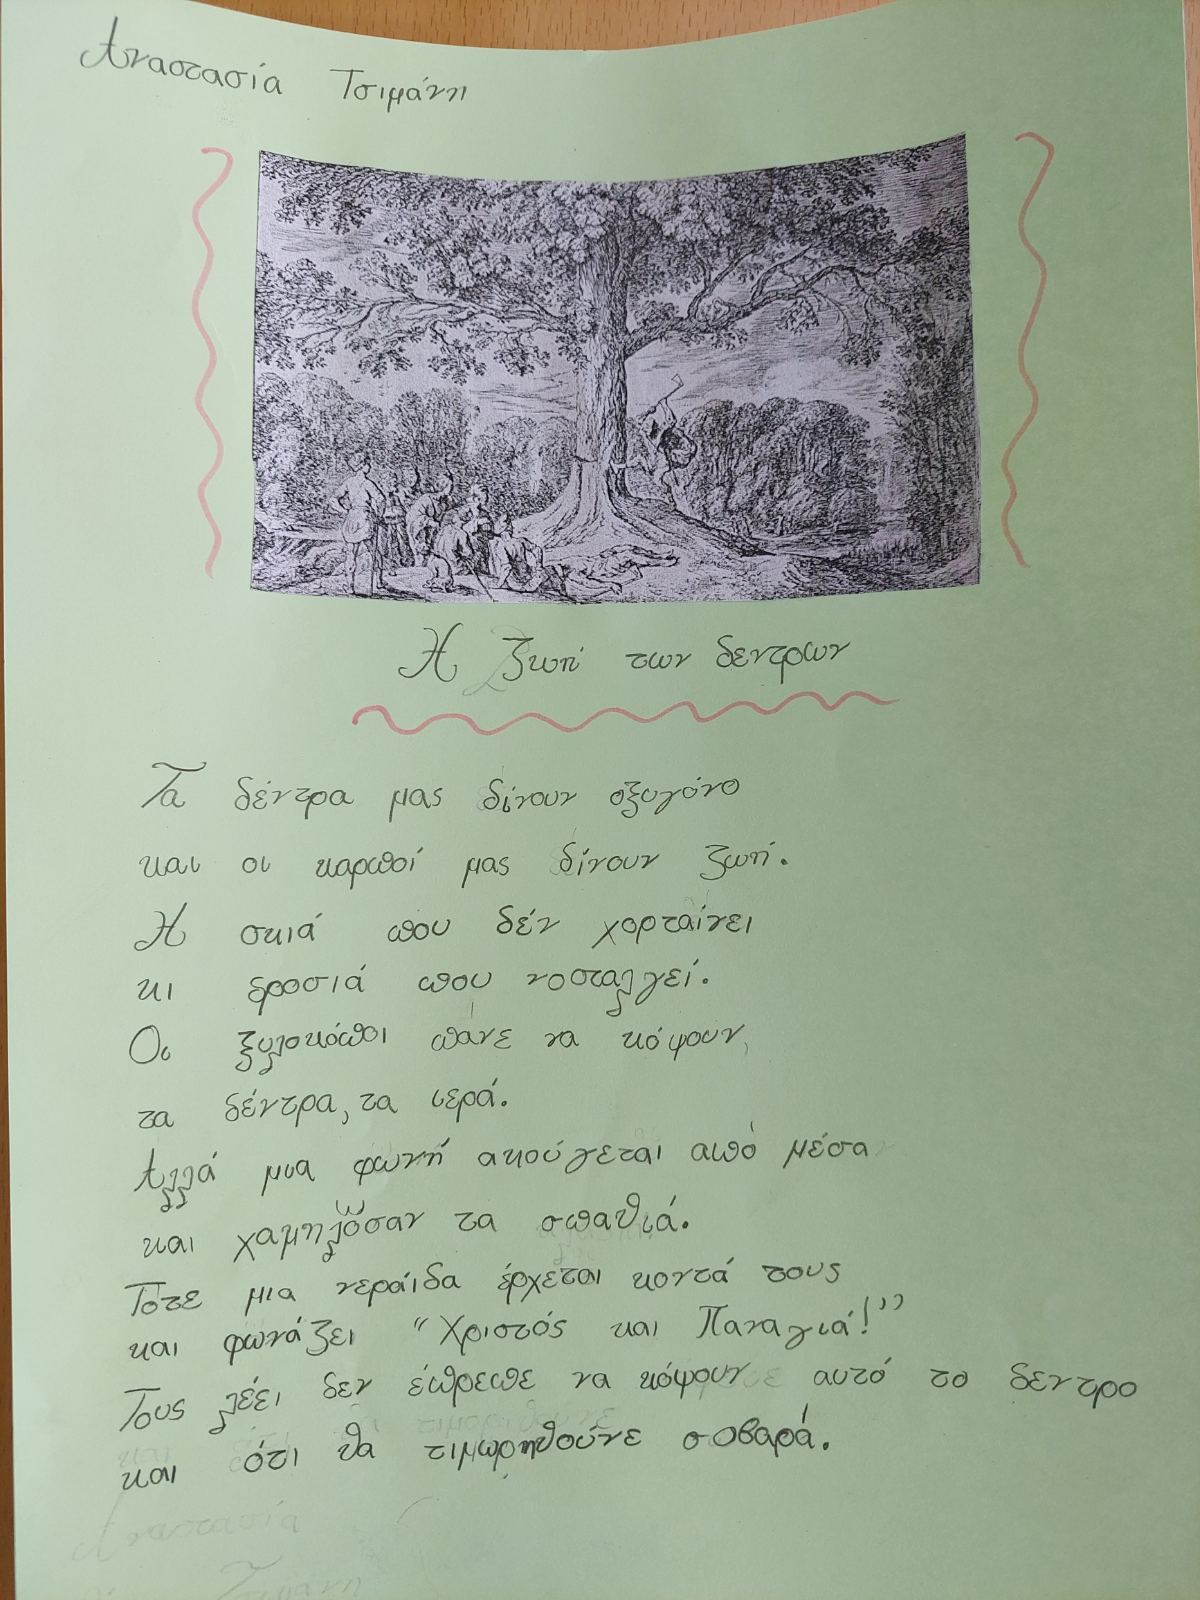 Αναστασία Τσιμάνη
Η ζωή των δεντρων
Τα δέντρα μας δίνουν οξυγόνο
και οι καρποί μας δίνουν ζωή.
Η σκιά που δέν χορταίνει
κι δροσιά που νοσταλγεί.
Οι ξυλοκόποι πάνε να κόψουν,
τα δέντρα, τα ιερά.
Αλλά μια φωνή ακούγεται από μέσα
και χαμηλώσαν τα σπαθιά.
Τότε μια νεράιδα έρχεται κοντά τους
και φωνάζει "Χριστός και Παναγιά!"
Τους λέει δεν έπρεπε να κόψουν αυτό το δεντρο
και ότι θα τιμωρηθούνε σοβαρά.
Αναστασία
Τσιμάνη